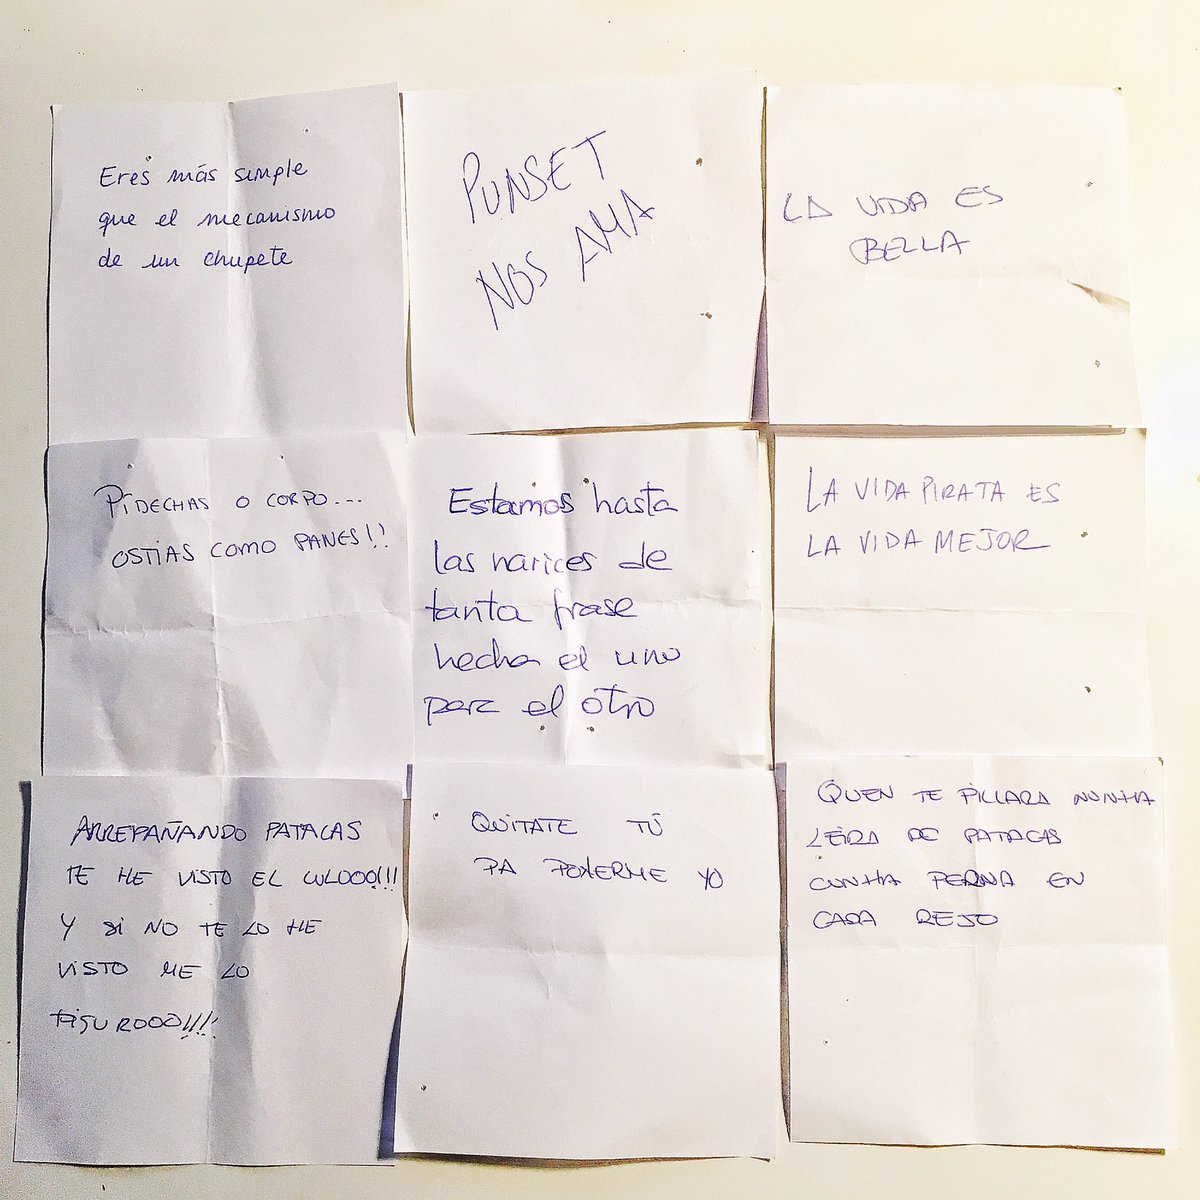 Eres más simple
que el mecanismo
de un chupete
PUNSET
NOS AMA
LA VIDA ES
BELLA
PIDECHAS O CORPO...
OSTIAS COMO PANES!!
Estamos hasta
las narices de
tanta frase
hecha el uno
para el otro
LA VIDA PIRATA ES
LA VIDA MEJOR
ARREPAÑANDO PATACAS
TE HE VISTO EL CULOOO!!!!
Y SI NO TE LO HE
VISTO ME LO
FIGUROOO!!!
QUITATE TÚ
PA PONERME YO
QUEN TE PILLARA NUNHA
LEIRA DE PATACAS
CUNHA PERNA EN
CADA REJO